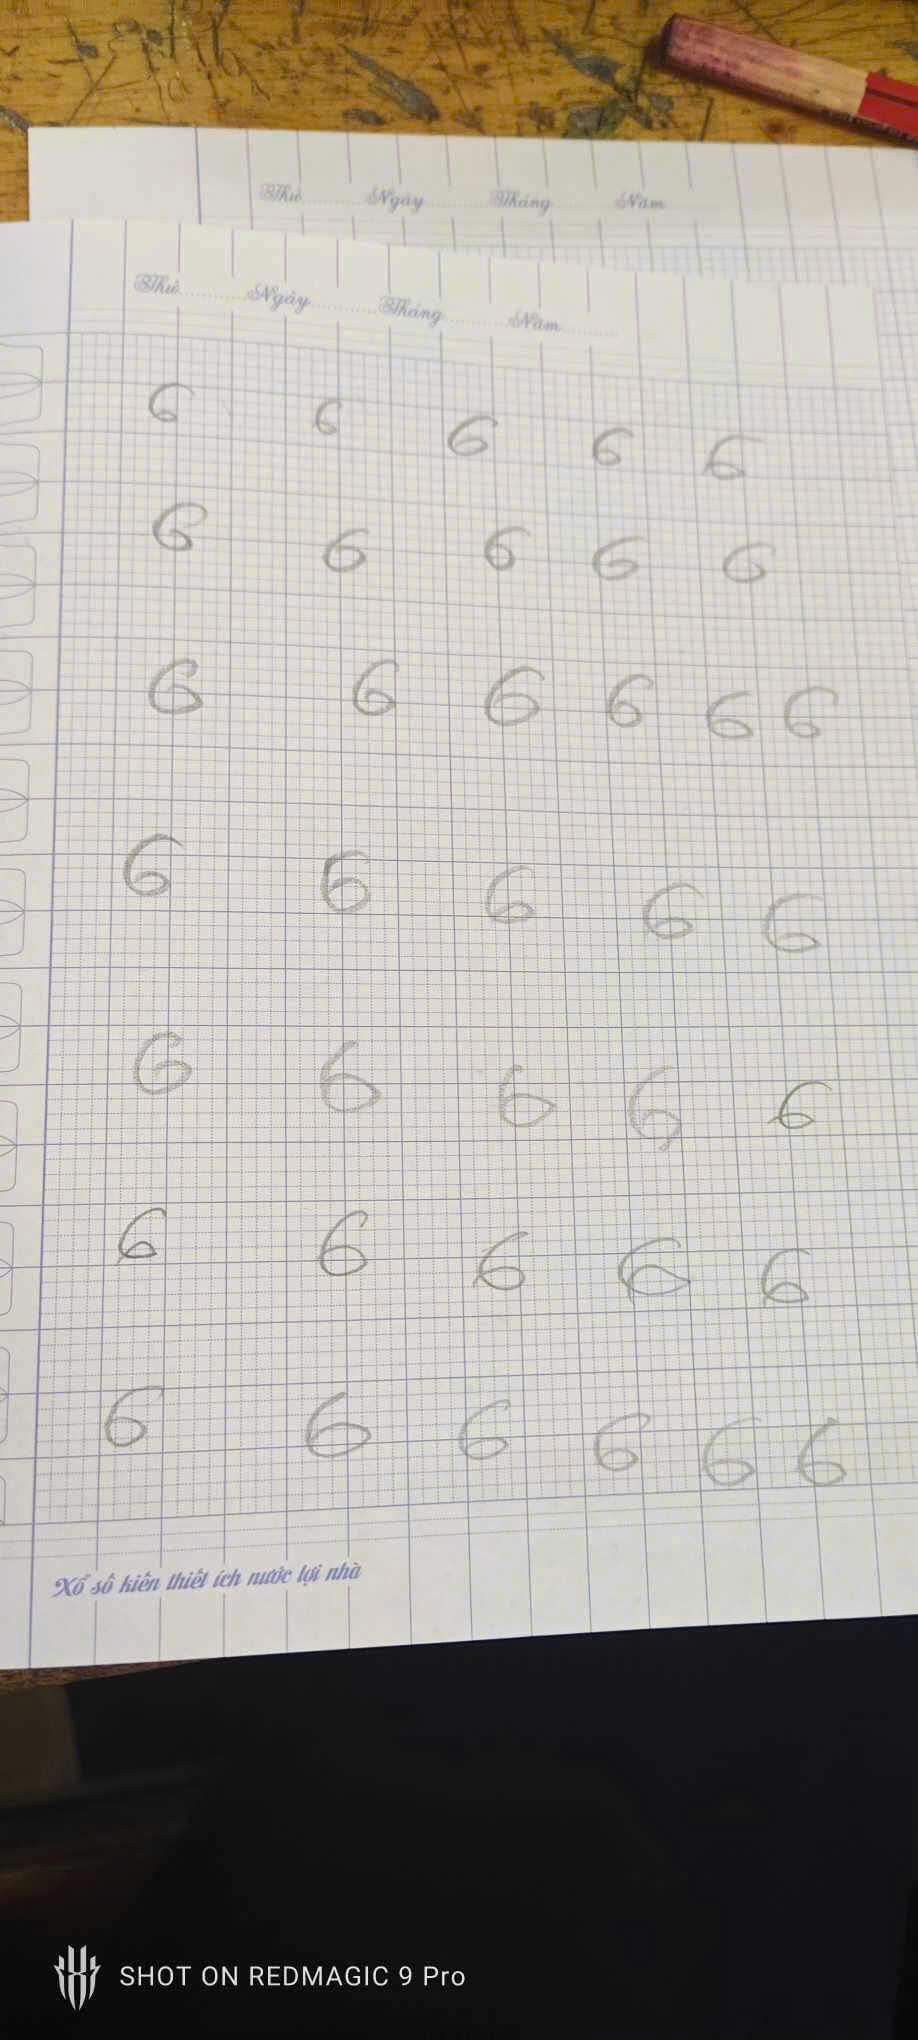 Thứ..........Ngày..........Tháng..........Năm
Thứ..........Ngày..........Tháng..........Năm..........
6 6 6 6 6
6 6 6 6 6
6 6 6 6 6 6
6 6 6 6 6
6 6 6 6 6
6 6 6 6 6
6 6 6 6 6 6
Xổ số kiến thiết ích nước lợi nhà
SHOT ON REDMAGIC 9 Pro